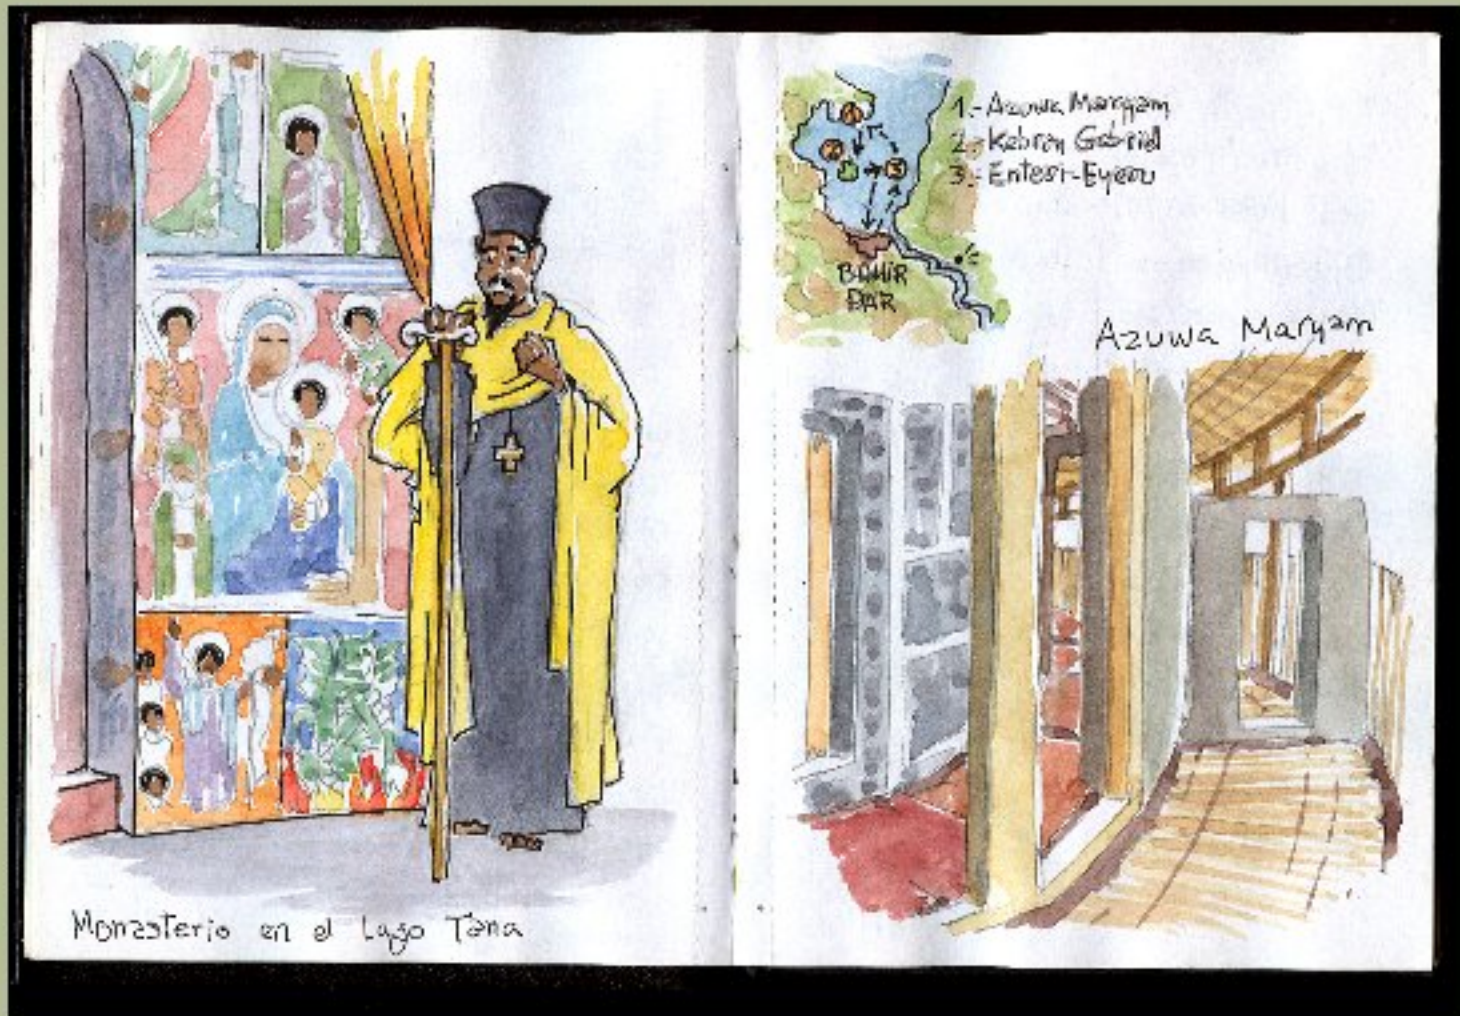 Monasterio en el Lago Tana
1.- Azuwa Maryam
2.- Kebran Gabriel
3.- Entesi-Eyesu
BAHIR
DAR
Azuwa Maryam
1
2
3